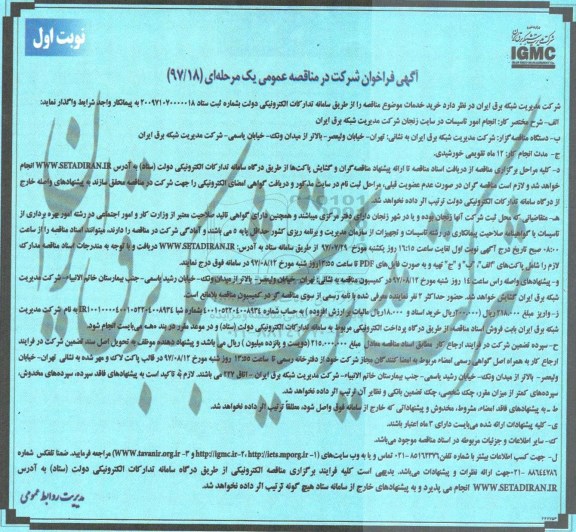 نوبت اول
شرکت مدیریت شبکه برق ایران
IGMC
آگهی فراخوان شرکت در مناقصه عمومی یک مرحله‌ای (۹۷/۱۸)
شرکت مدیریت شبکه برق ایران در نظر دارد خرید خدمات موضوع مناقصه را از طریق سامانه تدارکات الکترونیکی دولت بشماره ثبت ستاد ۲۰۰۹۷۱۰۷۰۰۰۰۰۱۸ به پیمانکار واجد شرایط واگذار نماید:
الف- شرح مختصر کار: انجام امور تاسیسات در سایت زنجان شرکت مدیریت شبکه برق ایران
ب- دستگاه مناقصه‌گزار: شرکت مدیریت شبکه برق ایران به نشانی: تهران- خیابان ولیعصر- بالاتر از میدان ونک- خیابان یاسمی- شرکت مدیریت شبکه برق ایران
ج- مدت انجام کار: ۱۲ ماه تقویمی خورشیدی.
د- کلیه مراحل برگزاری مناقصه از دریافت اسناد مناقصه تا ارائه پیشنهاد مناقصه گران و گشایش پاکت‌ها از طریق درگاه سامانه تدارکات الکترونیکی دولت (ستاد) به آدرس WWW.SETADIRAN.IR انجام
خواهد شد و لازم است مناقصه گران در صورت عدم عضویت قبلی، مراحل ثبت نام در سایت مذکور و دریافت گواهی امضای الکترونیکی را جهت شرکت در مناقصه محقق سازند به پیشنهادهای واصله خارج
از درگاه سامانه تدارکات الکترونیکی دولت ترتیب اثر داده نخواهد شد.
ه- متقاضیانی که محل ثبت شرکت آنها زنجان بوده و یا در شهر زنجان دارای دفتر مرکزی میباشند و همچنین دارای گواهی تائید صلاحیت معتبر از وزارت کار و امور اجتماعی در رشته امور بهره برداری از
تاسیسات یا گواهینامه صلاحیت پیمانکاری در رشته تاسیسات و تجهیزات از سازمان مدیریت و برنامه ریزی کشور حداقل پایه ۵ می باشند و آمادگی شرکت در مناقصه را دارند، میتوانند اسناد مناقصه را از ساعت
۰۸:۰۰ صبح تاریخ درج آگهی نوبت اول لغایت ساعت ۱۶:۱۵ روز یکشنبه مورخ ۹۷/۰۷/۲۹ از طریق سامانه ستاد به آدرس: WWW.SETADIRAN.IR دریافت و با توجه به مندرجات اسناد مناقصه مدارک
لازم را شامل پاکت‌های "الف"، "ب" و "ج" تهیه و به صورت فایل‌های PDF تا ساعت ۱۳:۵۵ روز شنبه مورخ ۹۷/۰۸/۱۲ در سامانه فوق درج نمایند.
و- پیشنهادهای واصله راس ساعت ۱۴ روز شنبه مورخ ۹۷/۰۸/۱۲ در کمیسیون مناقصه به نشانی: تهران- خیابان ولیعصر- بالاتر از میدان ونک- خیابان رشید یاسمی- جنب بیمارستان خاتم الانبیاء- شرکت مدیریت
شبکه برق ایران گشایش خواهد شد. حضور حداکثر ۲ نفر نماینده معرفی شده با نامه رسمی از سوی مناقصه گر در کمیسیون مناقصه بلامانع است.
ایران بابت فروش اسناد مناقصه از طریق درگاه پرداخت الکترونیکی مربوط به سامانه تدارکات الکترونیکی دولت (ستاد) و در موعد مقرر در بند «ه» می‌بایست انجام شود.
ح- سپرده تضمین شرکت در فرایند ارجاع کار مطابق اسناد مناقصه معادل مبلغ ۲۱۵.۰۰۰.۰۰۰ (دویست و پانزده میلیون) ریال می باشد و پیشنهاد دهنده موظف به تحویل اصل سند تضمین شرکت در فرایند
ارجاع کار به همراه اصل گواهی رسمی امضاء مربوط به امضا کنندگان مجاز شرکت خود از دفترخانه رسمی تا ساعت ۱۳:۵۵ روز شنبه مورخ ۹۷/۰۸/۱۲ در قالب پاکت لاک و مهر شده به نشانی تهران- خیابان
ولیعصر- بالاتر از میدان ونک- خیابان رشید یاسمی- جنب بیمارستان خاتم الانبیاء- شرکت مدیریت شبکه برق ایران - اتاق ۲۲۷ می باشند. لازم به تاکید است به پیشنهادهای فاقد سپرده، سپرده‌های مخدوش،
سپرده‌های کمتر از میزان مقرر، چک شخصی، چک تضمین بانکی و نظایر آن ترتیب اثر داده نخواهد شد.
ط- به پیشنهادهای فاقد امضاء، مشروط، مخدوش و پیشنهاداتی که خارج از سامانه فوق واصل شود، مطلقا ترتیب اثر داده نخواهد شد.
ی- کلیه پیشنهادات ارائه شده می‌بایست دارای ۳ ماه اعتبار باشند.
ک- سایر اطلاعات و جزئیات مربوطه در اسناد مناقصه موجود می‌باشد.
ل- جهت کسب اطلاعات بیشتر با شماره تلفن ۸۵۱۶۲۳۷۶-۰۲۱ تماس و یا به وب سایت‌های (۱- http://iets.mporg.ir ۲- http://igmc.ir و ۳- www.tavanir.org.ir) مراجعه فرمایید. ضمنا تلفکس شماره
۸۸۶۴۴۷۸۶-۰۲۱ جهت ارائه نظرات و پیشنهادات می‌باشد. بدیهی است کلیه فرایند برگزاری مناقصه الکترونیکی از طریق درگاه سامانه تدارکات الکترونیکی دولت (ستاد) به آدرس
WWW.SETADIRAN.IR انجام می پذیرد و به پیشنهادهای خارج از سامانه ستاد هیچ گونه ترتیب اثر داده نخواهد شد.
مدیریت روابط عمومی